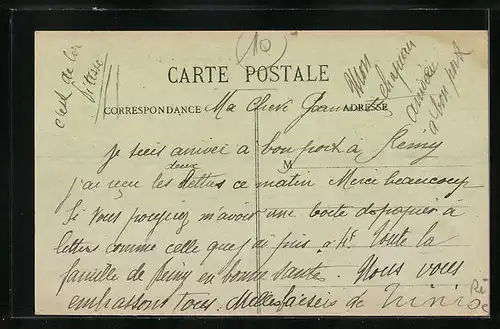 10
c'est de la
vitesse
Mon
chapeau
arrivée
à bon port
CARTE POSTALE
CORRESPONDANCE
ADRESSE
Ma Chere
je suis arrivée a bon port a Reiny
deux
j'ai reçu les lettres ce matin Merci beaucoup
M
Si vous pourriez m'avoir une boite de papier à
lettres comme celle que j'ai pris a Toute la
famille de Reiny en bonne santé. Nous vous
embrassons tous. Mille baisers de Ninie